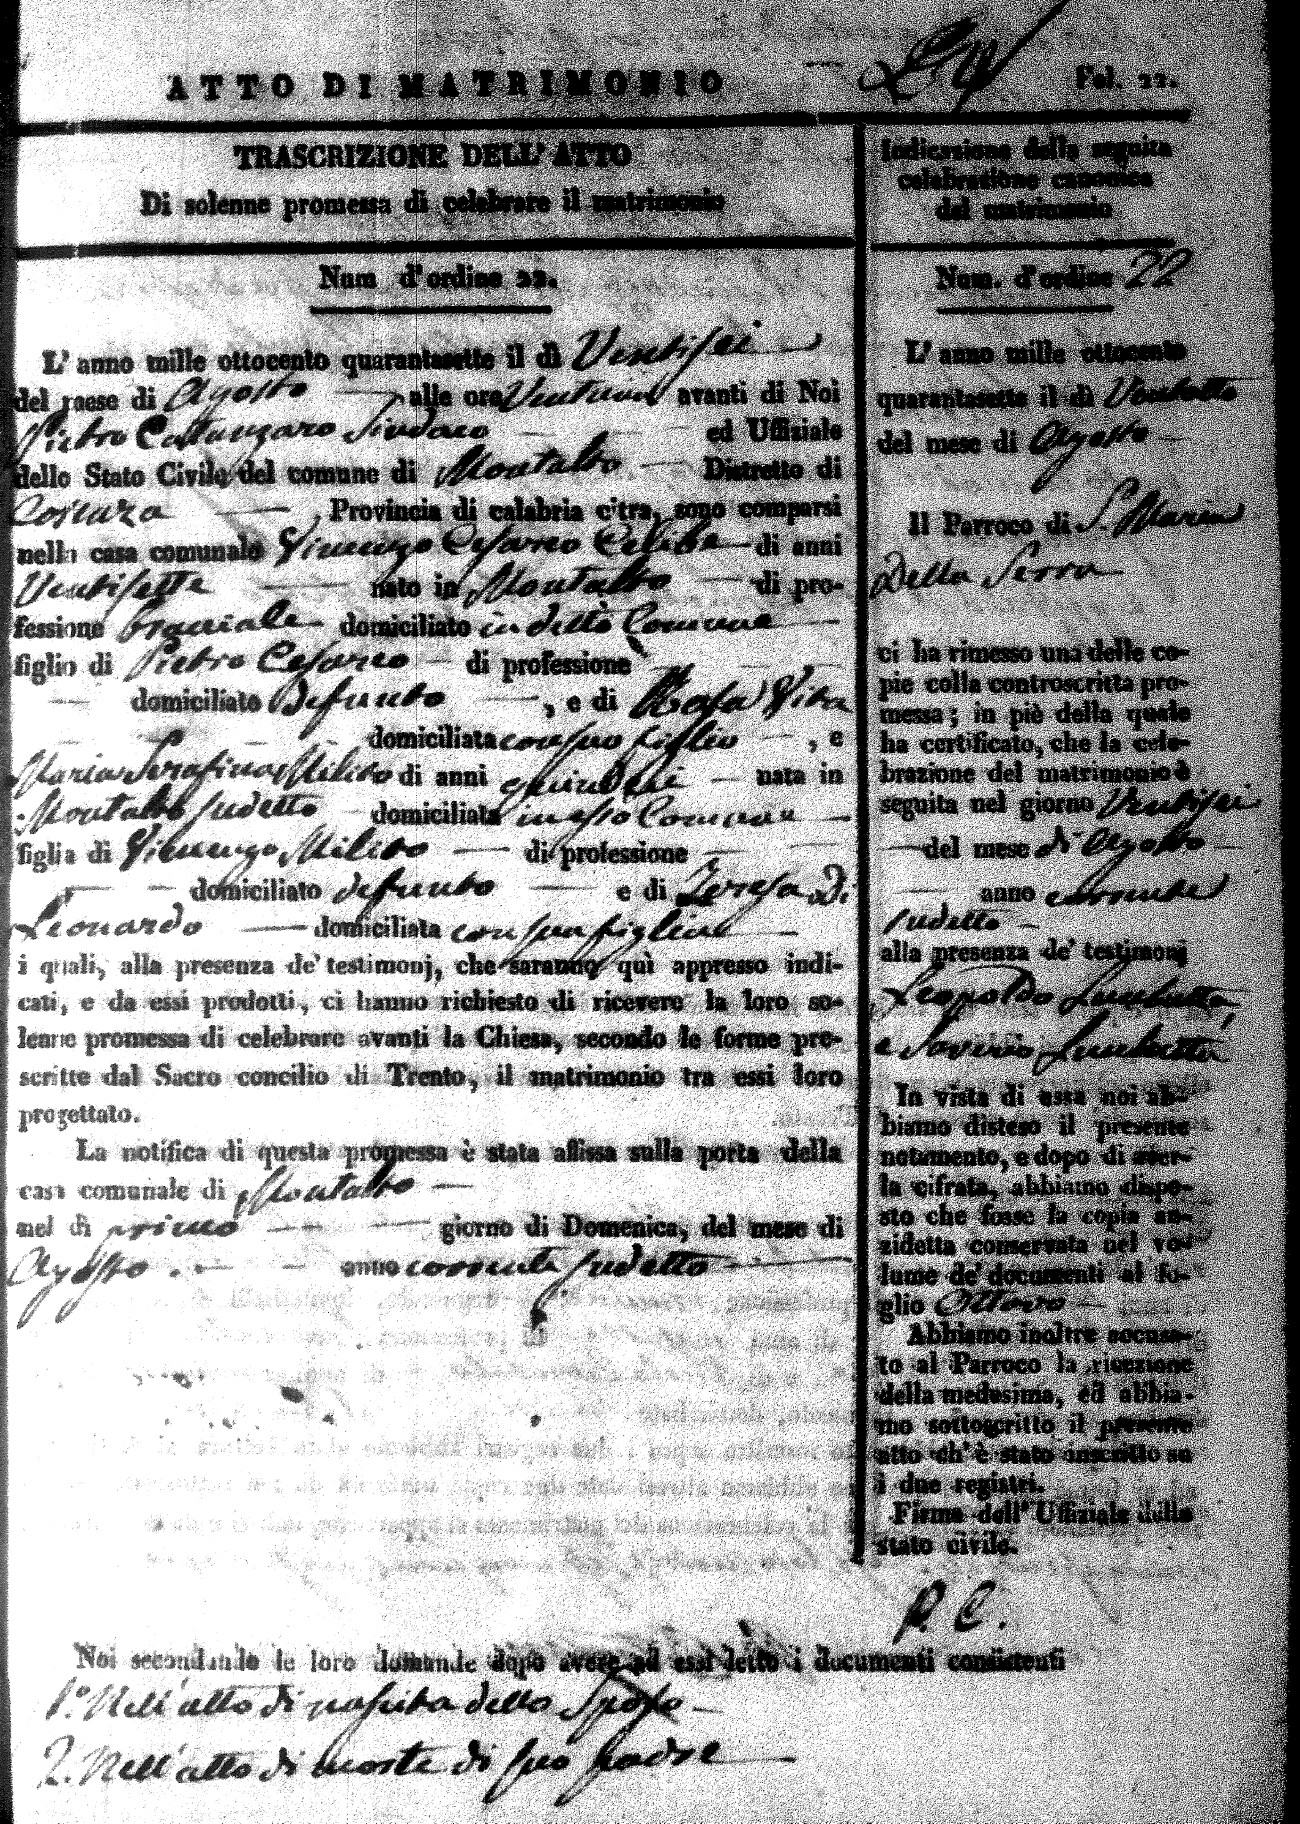 ATTO DI MATRIMONIO
Fol. 22.
TRASCRIZIONE DELL' ATTO
Di solenne promessa di celebrare il matrimonio
Num d'ordine 22.
L' anno mille ottocento quarantasette il dì Ventisei
del mese di Agosto alle ore Ventuno avanti di Noi
Pietro Catanzaro Sindaco ed Uffiziale
dello Stato Civile del comune di Montalto Distretto di
Cosenza Provincia di calabria citra, sono comparsi
nella casa comunale Vincenzo Cesareo Celibe di anni
Ventisette nato in Montalto di pro-
fessione bracciale domiciliato in detto Comune
figlio di Pietro Cesareo di professione
domiciliato Defunto , e di Rosa Vita
domiciliata con suo figlio , e
Maria Serafina Milito di anni quindeci nata in
Montalto sudetto domiciliata in esso Comune
figlia di Vincenzo Milito di professione
domiciliato defunto e di Teresa Di
Leonardo domiciliata con sua figlia
i quali, alla presenza de' testimonj, che saranno quì appresso indi-
cati, e da essi prodotti, ci hanno richiesto di ricevere la loro so-
lenne promessa di celebrare avanti la Chiesa, secondo le forme pre-
scritte dal Sacro concilio di Trento, il matrimonio tra essi loro
progettato.
La notifica di questa promessa è stata affissa sulla porta della
casa comunale di Montalto
nel dì primo giorno di Domenica, del mese di
Agosto anno corrente sudetto
Indicazione della seguita
celebrazione canonica
del matrimonio
Num. d'ordine 22
L' anno mille ottocento
quarantasette il dì Ventotto
del mese di Agosto
Il Parroco di S. Maria
Della Serra
ci ha rimesso una delle co-
pie colla controscritta pro-
messa; in piè della quale
ha certificato, che la cele-
brazione del matrimonio è
seguita nel giorno Ventisei
del mese di Agosto
anno corrente
sudetto
alla presenza de' testimonj
Leopoldo
e Saverio
In vista di essa noi ab-
biamo disteso il presente
notamento, e dopo di aver-
la cifrata, abbiamo dispo-
sto che fosse la copia an-
zidetta conservata nel vo-
lume de' documenti al fo-
glio Ottavo
Abbiamo inoltre accusa-
to al Parroco la ricezione
della medesima, ed abbia-
mo sottoscritto il presente
atto ch' è stato inscritto su
i due registri.
Firma dell' Uffiziale dello
stato civile.
P. C.
Noi secondando le loro domande dopo avere ad essi letto i documenti consistenti
1.° Nell'atto di nascita dello Sposo
2. Nell'atto di morte di suo padre